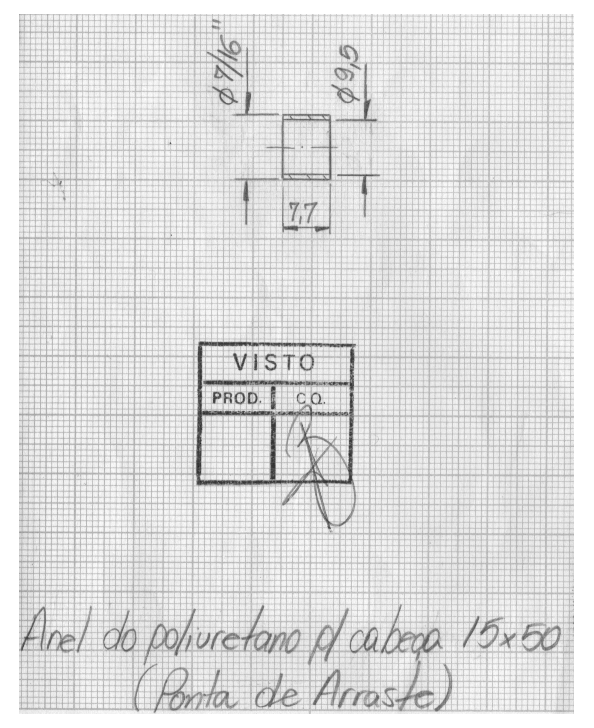 Ø7/16"
Ø9,5
7,7
VISTO
PROD. C.Q.
Anel do poliuretano p/ cabeça 15x50
(Ponta de Arraste)